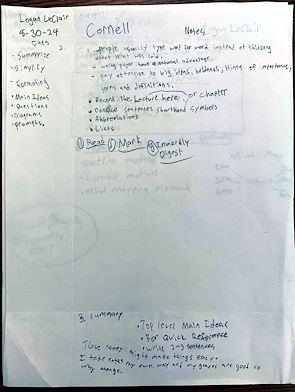 Logan LeClair
8-30-24
Cues
- Summarize
- Simplify
- Formating
- Main Ideas
- Questions
- Diagrams
- prompts.
Cornell
Notes
Logan LeClair
2.
1. people usually type word for word instead of thinking
about what was said.
- using paper have an advantage.
- pay attention to big ideas,
term and definitions.
• Record the Lecture here: or chapter
• sentences shorthand symbols
• Abbreviations
• Lists
① Read ② Mark ③ Digest
outline method
Cornell method
mind mapping method
3. summary
• Top level Main Ideas
• For Quick Reference
• write 2-3 sentences
notes might make things easy.
I take notes my own way and my grades are good so
why change.